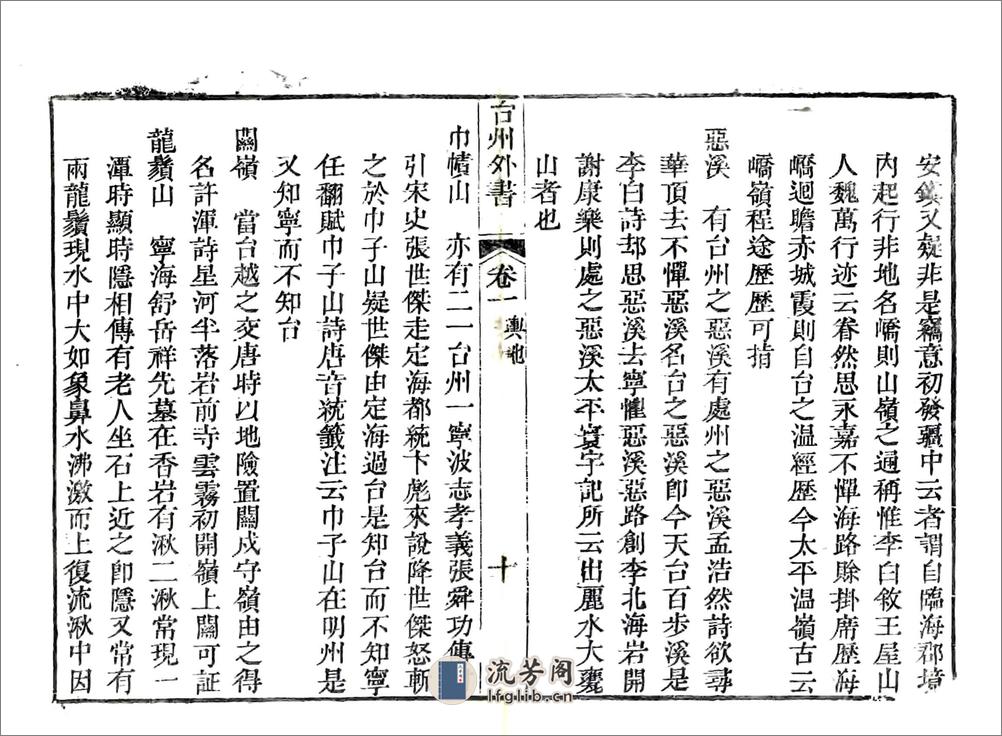 安鎮又疑非是竊意初發疆中云者謂自臨海郡境
內起行非地名嶠則山嶺之通稱惟李白敘王屋山
人魏萬行迹云眷然思永嘉不憚海路賒掛席歷海
嶠迴瞻赤城霞則自台之温經歷今太平温嶺古云
嶠嶺程途歷歷可指
惡溪　有台州之惡溪有處州之惡溪孟浩然詩欲尋
華頂去不憚惡溪名台之惡溪卽今天台百步溪是
李白詩却思惡溪去寧懼惡溪惡路創李北海岩開
謝康樂則處之惡溪太平寰宇記所云出麗水大甕
山者也
台州外書
卷一
輿地
十
巾幘山　亦有二一台州一寧波志孝義張舜功傳
引宋史張世傑走定海都統卞彪來說降世傑怒斬
之於巾子山疑世傑由定海過台是知台而不知寧
任翻賦巾子山詩唐音統籤注云巾子山在明州是
又知寧而不知台
關嶺　當台越之交唐時以地險置關戍守嶺由之得
名許渾詩星河半落岩前寺雲霧初開嶺上關可証
龍鬚山　寧海舒岳祥先墓在香岩有湫二湫常現一
潭時顯時隱相傳有老人坐石上近之卽隱又常有
兩龍鬚現水中大如象鼻水沸激而上復流湫中因
流芳阁
lfglib.cn